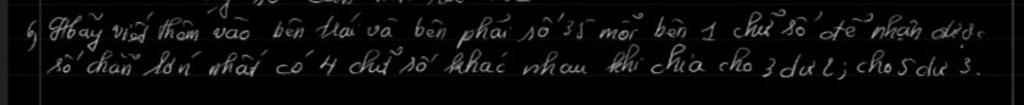 6, Hãy viết thêm vào bên trái và bên phải số 35 mỗi bên 1 chữ số để nhận được
số chẵn lớn nhất có 4 chữ số khác nhau khi chia cho 3 dư 2; cho 5 dư 3.